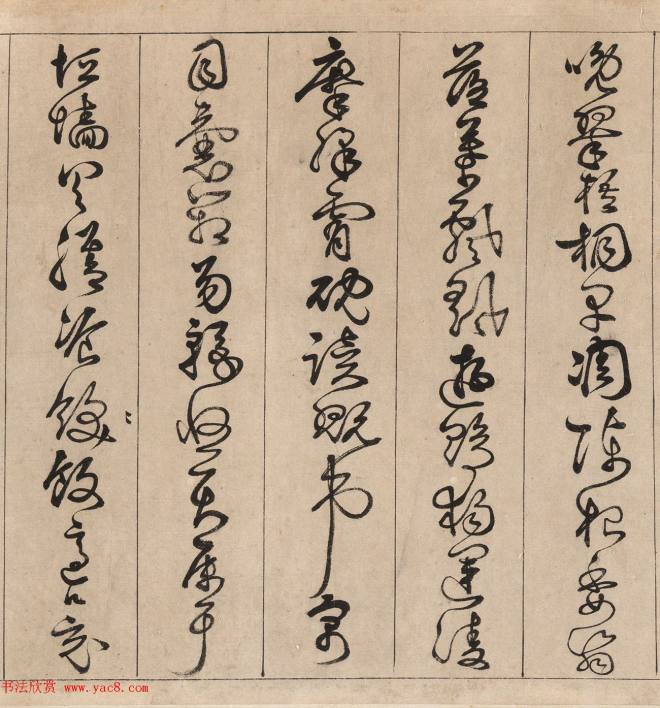 晚翠梧桐早凋陈根委翳
落叶飘飖游鹍独运凌
摩绛霄耽读玩市寓
目囊箱易輶攸畏属耳
垣墙具膳飡饭饫适口充
书法欣赏 www.yac8.com